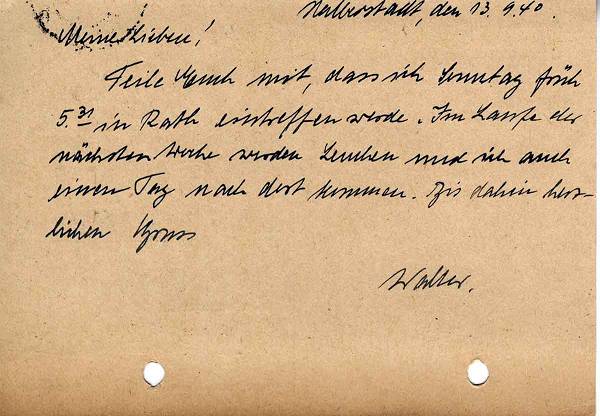 Halberstadt, den 13.9.40.
Meine Lieben!
Teile Euch mit, dass ich Sonntag früh
5.31 in Rath eintreffen werde. Im Laufe der
nächsten Woche werden Lenchen und ich auch
einen Tag nach dort kommen. Bis dahin herz-
lichen Gruss
Walter.